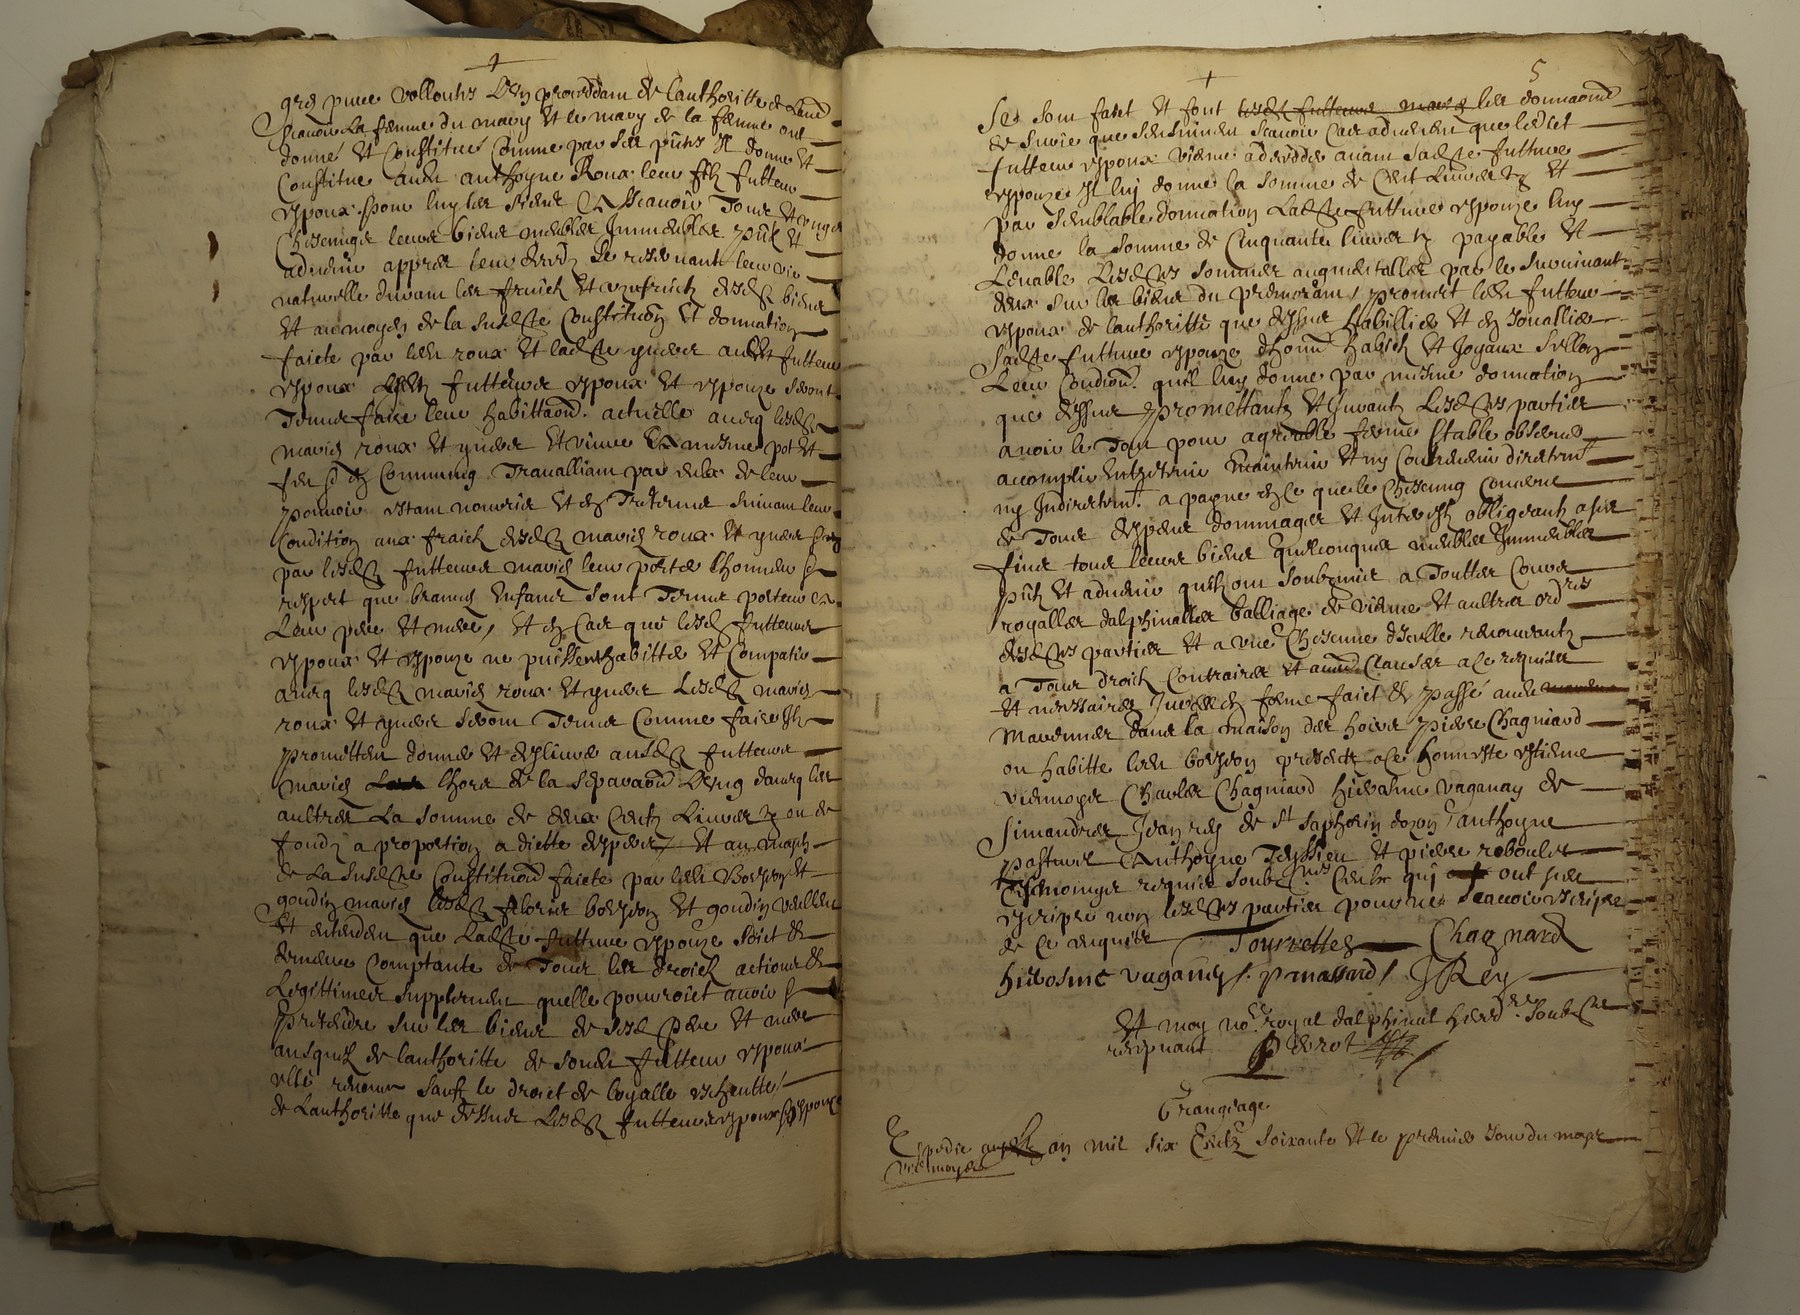 gres pures vollontes L'ung proceddant de l'authoritté de L'autre
scavoir La femme du mary Et le mary de la femme ont
donné Et Constitué Comme par ses pntes Ils donne Et
Constitue audit anthoyne Roux leur filz futteur
espoux pour luy les siens Scavoir Tous Et ungs
Chescungs leurs biens meubles Immeubles pntz Et
advenir appres leur deces Se reservant leur vie
naturelle durant les fruictz Et usufruictz desdits biens
Et au moyen de la susdite Constitution Et donnation
faicte par ledit roux Et ladite audit futteur
espoux Lesdits futteurs espoux Et espouze seront
Tenus faire leur habittaon. actuelle avecq lesdits
maries roux Et Et vivre a mesme pot Et
feu Commung Travalliant par eulx de leur
pouvoir estant nourris Et Entretenus suivant leur
Condition aux fraictz desdits maries roux Et
par lesdits futteurs maries leur porter l'honneur &
respect que Enfans sont Tenus porter a
Leur pere Et mere, Et en Cas que lesdits futteurs
espoux Et espouze ne puissent habitter Et Compatir
avecq lesdits maries roux Et Lesdits maries
roux Et seront Tenus Comme faire Ilz
promettent donner Et deslivrer ausdits futteurs
maries lhors de la separaon L'ung d'avecq les
aultres La somme de deux Centz Livres tz ou de
fondz a proportion a diette d'expers Et au moyen
de La susdite Constitution faicte par ledit Et
goudin maries lesdits Et goudin veullent
Et entendent que Ladite futture espouze soict &
demeure Comptante de Tous les droictz actions &
Legittimes supplement quelle pourroict avoir &
pretendre sur les biens de sesdits pere Et mere
ausquelz de l'authoritté de sondit futteur espoux
elle renonce sauf le droict de loyalle escheutte
de L'authoritté que dessus Lesdits futteurs espoux & espouze
5
Se sont faict Et font les donnaons
de survie que s'ensuivent scavoir Cas advenant que ledit
futteur espoux vienne a deceder avant sadite futture
espouze Il luy donne la somme de Cent Livres tz Et
par semblable donnation Ladite futture espouze luy
donne la somme de Cinquante livres tz payable Et
Levable Lesdites sommes augmentalles par le survivant
deux sur les biens du premorant, promet ledit futteur
espoux de l'authoritté que dessus habillier Et en Jouallier
sadite futture espouze d'honn. habitz Et Joyaux sellon
Leur Condion. qu'il luy donne par mesme donnation
que dessus promettantz Et Jurantz Lesdites parties
avoir le Tout pour agreable ferme stable observer
accomplir Entretenir maintenir Et ny Contrevenir directemt
ny Indirectemt. a payne en Ce que le Chescung Concerne
de Tous despens dommages Et Interestz obligeantz a ses
fins tous leurs biens quelconques meubles Immeubles
pntz Et advenir qu'ilz ont soubzmis a Touttes Cours
royalles dalphinalles balliage de vienne Et aultres ordres
desdites parties Et a une Chescune d'icelle renonceantz
a Tous droictz Contraires Et aues Clauses a Ce requises
Et necessaires Jurée En forme faict Et passé audit
Marennes dans la maison des hoirs pierre Chagniard
ou habitte ledit present a Ce honneste estienne
viennoys Charles Chagniard hierosme vaganay de
Simandres Jean rey de St saphorin dozon, anthoyne
pasteur Anthoyne Teyssieu Et pierre reboulet
Tesmoings requis soubznes Ceulx qui ont sceu
escripre non lesdites parties pour ne scavoir escripre
de Ce enquis Tourrettes Chagnard
hierosme vaganey panassard JRey
Et moy nore royal dalphinal hered.re soubzne
recepvant Perrot
Trangeage
Expedié
viennoys
an mil six Centz soixante Et le premier Jour du moys